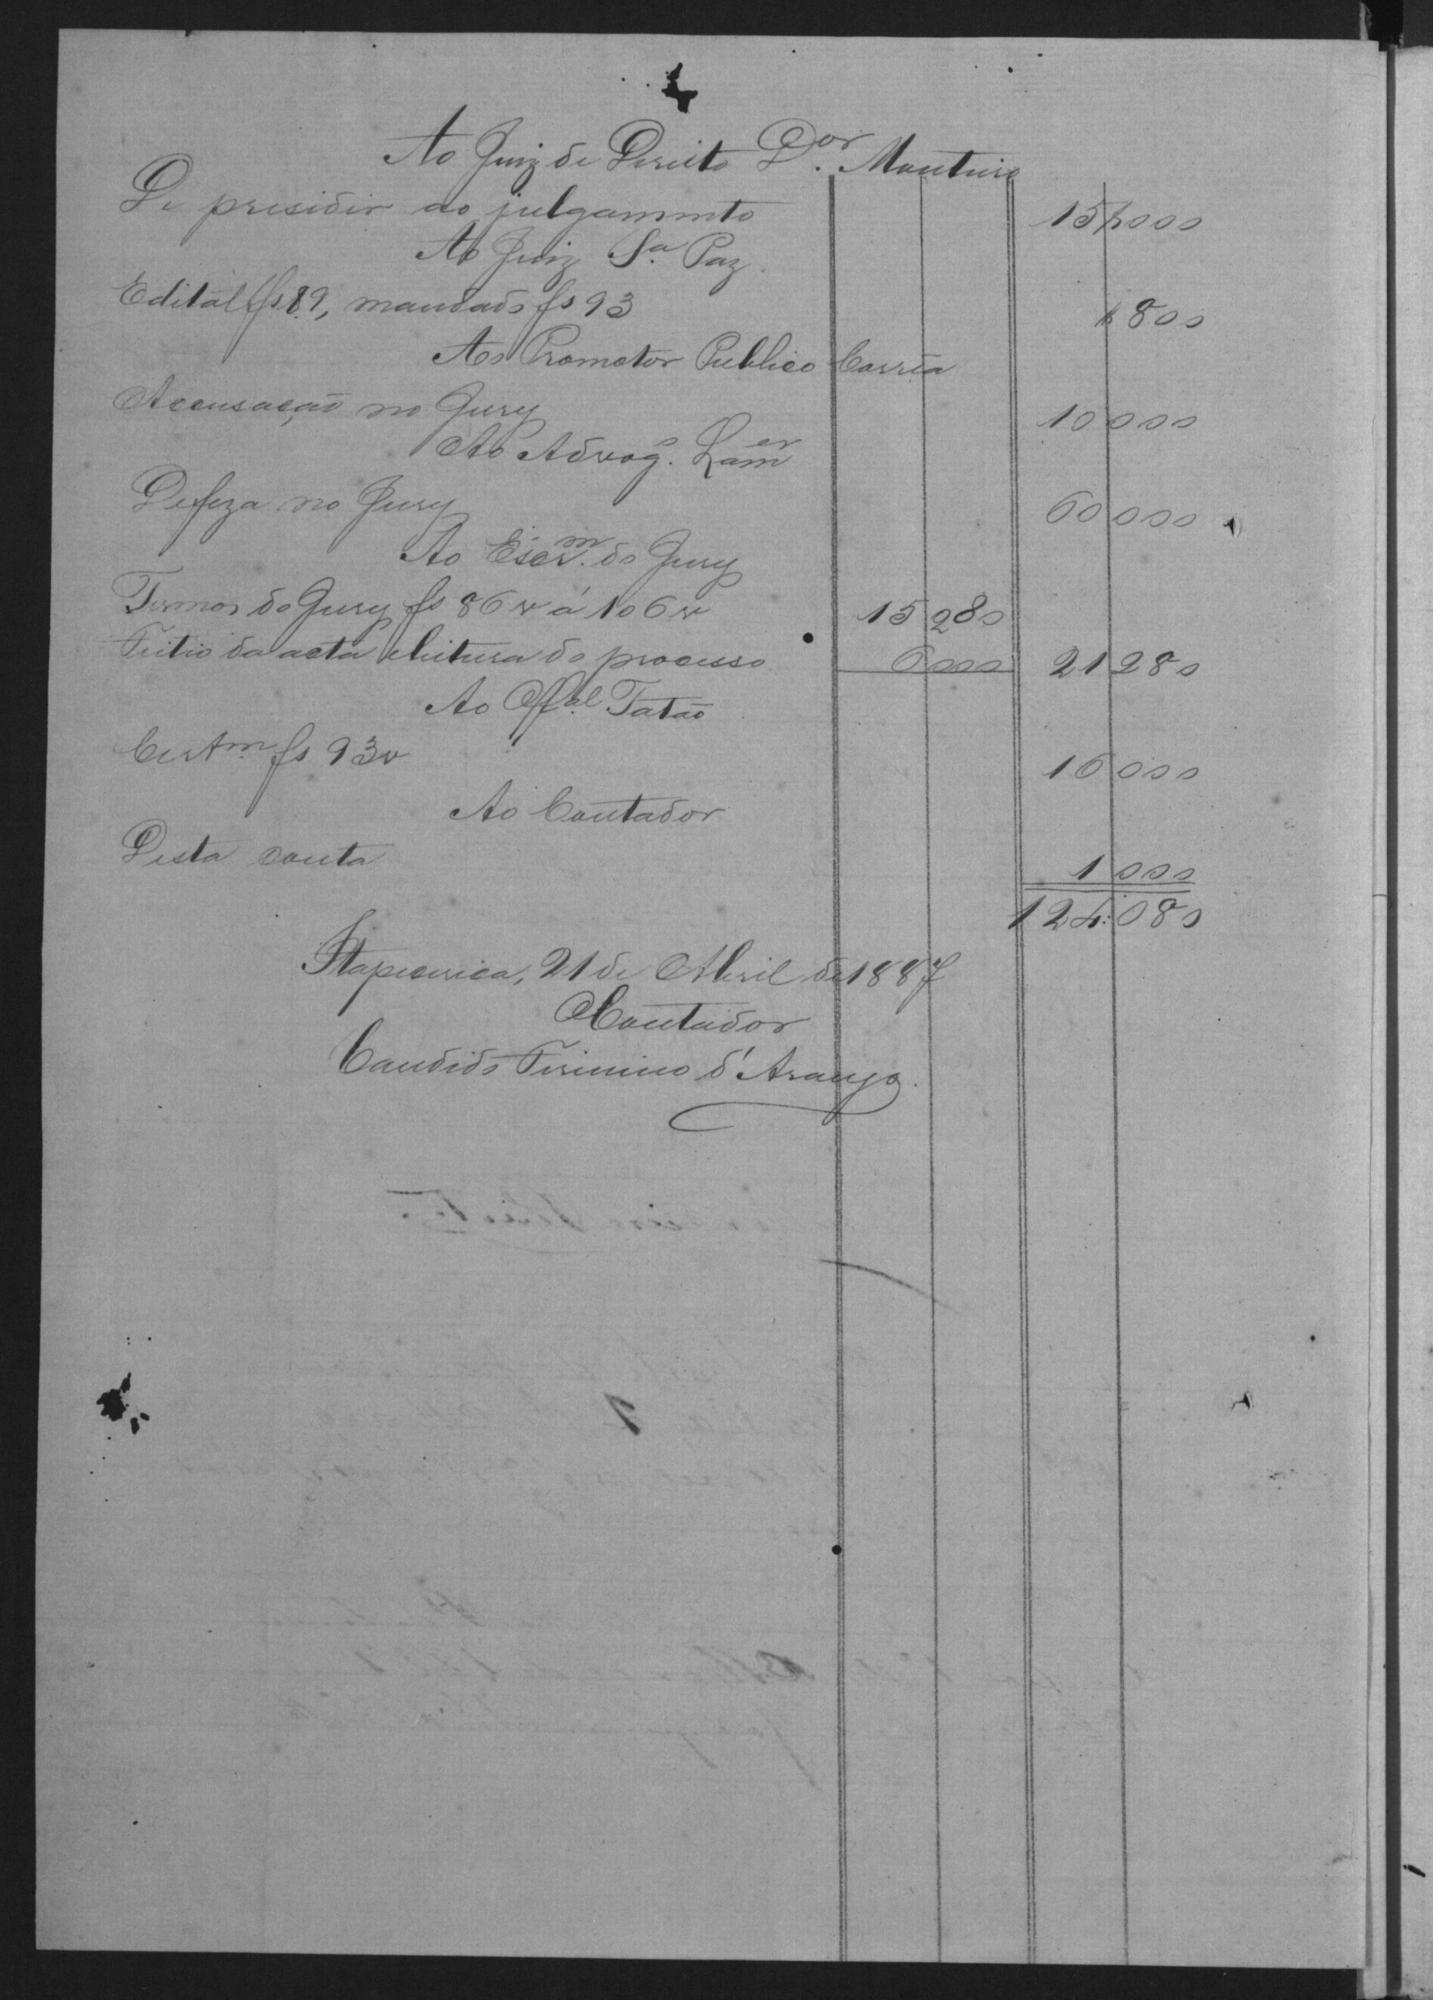 Ao Juiz de Direito D.or Monteiro
De presidir ao julgamento 15$000
Ao Juiz S.a Paz
Edital fs 89, mandado fs 93 $800
Ao Promotor Publico Corrêa
Accusação no Jury 10000
Ao Advog.o Lam.er
Defeza no Jury 60000
Ao Escr.m do Jury
Termos do Jury fs 86v á 106v 15280
Feitio da acta e leitura do processo 6000 21280
Ao Off.al Tatão
Cert.m fs 93v 16000
Ao Contador
Desta conta 1000
124:080
Itapecerica, 21 de Abril de 1887
O Contador
Candido Firmino d'Araujo.